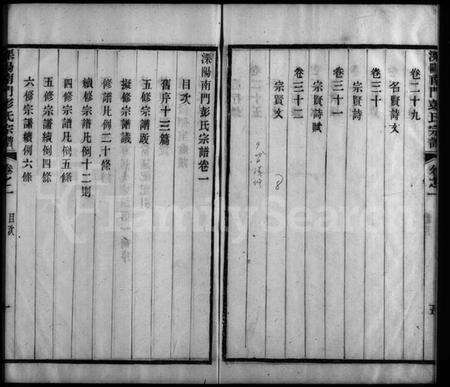 溧陽南門彭氏宗譜
卷之一
卷二十九
名賢詩文
卷三十
宗賢詩
卷三十一
宗賢詩賦
卷三十二
宗賢文
溧陽南門彭氏宗譜卷一
目次
舊序十三篇
五修宗譜跋
擬修宗譜議
修譜凡例二十條
續修宗譜凡例十二則
四修宗譜凡例五條
五修宗譜續例四條
六修宗譜續例六條
溧陽南門彭氏宗譜
卷之一
目次
一
FamilySearch